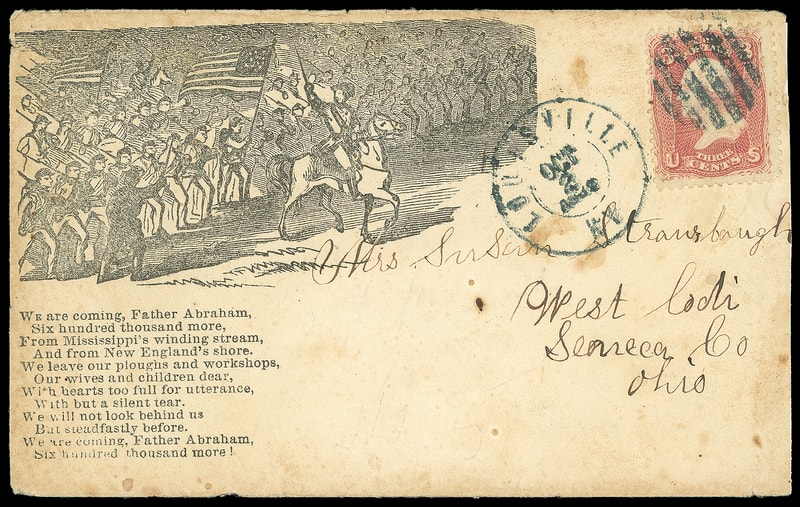 We are coming, Father Abraham,
Six hundred thousand more,
From Mississippi's winding stream,
And from New England's shore.
We leave our ploughs and workshops,
Our wives and children dear,
With hearts too full for utterance,
With but a silent tear.
We will not look behind us
But steadfastly before.
We are coming, Father Abraham,
Six hundred thousand more!
LOUISVILLE KY
OCT
U THREE S
CENTS
Mrs Susan Stransbaugh
West Lodi
Seneca Co
Ohio